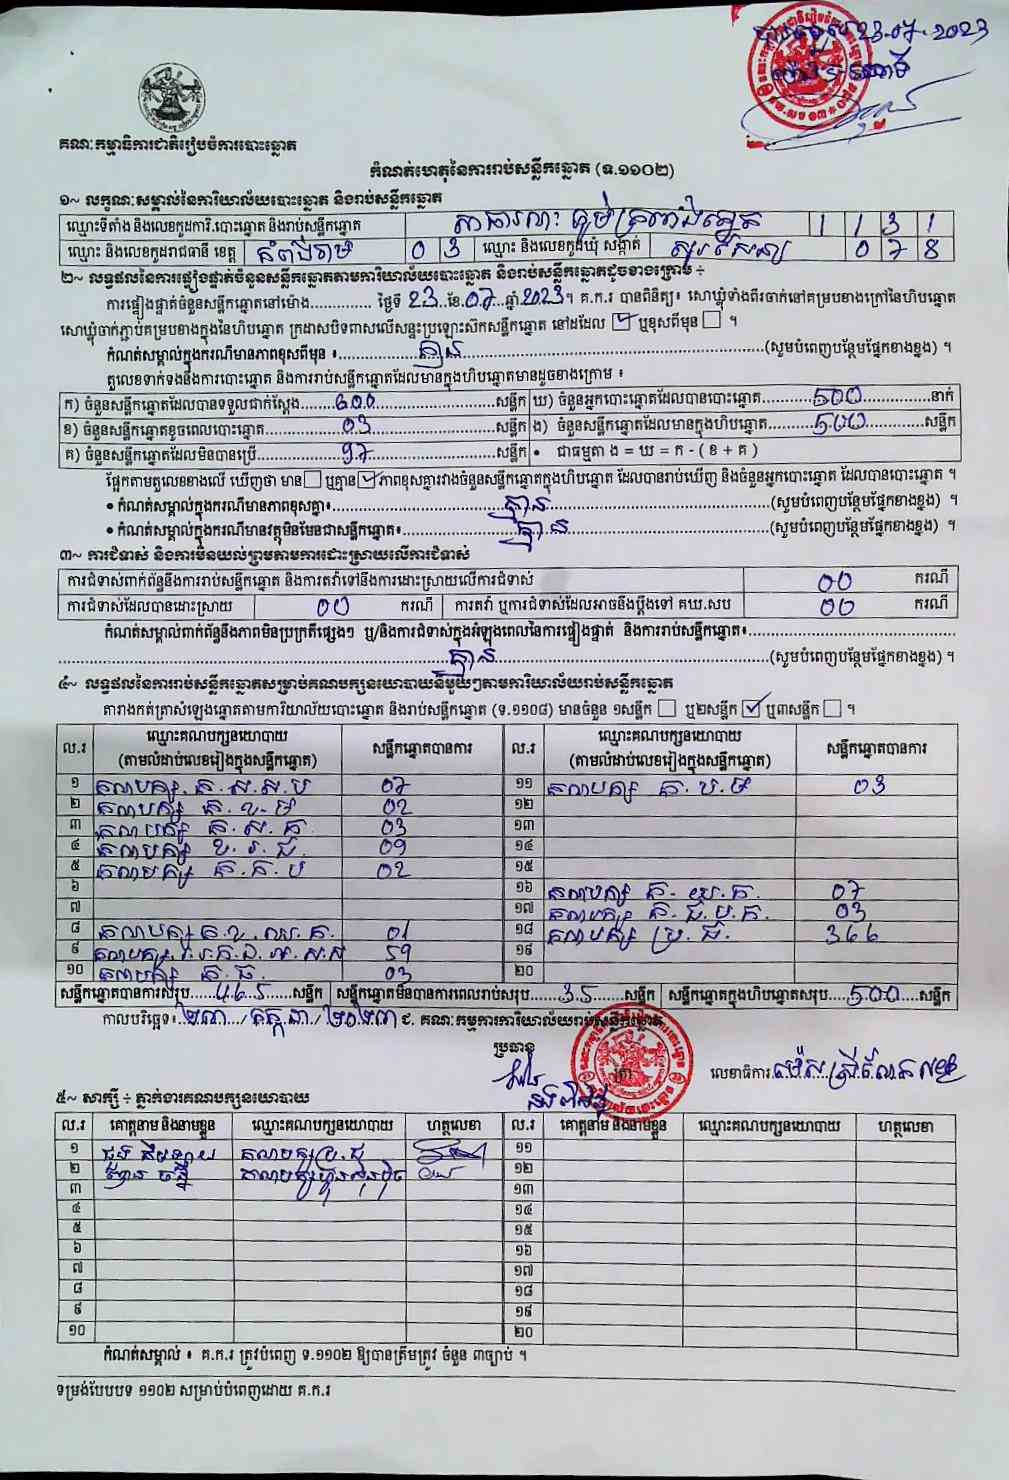 23.07.2023
គណៈកម្មាធិការជាតិរៀបចំការបោះឆ្នោត
កំណត់ហេតុនៃការរាប់សន្លឹកឆ្នោត (ទ.១១០២)
១~ លក្ខណៈសម្គាល់នៃការិយាល័យបោះឆ្នោត និងរាប់សន្លឹកឆ្នោត
ឈ្មោះទីតាំង និងលេខកូដការិ.បោះឆ្នោត និងរាប់សន្លឹកឆ្នោត 1 1 3 1
ឈ្មោះ និងលេខកូដរាជធានី ខេត្ត កំពង់ចាម 0 3 ឈ្មោះ និងលេខកូដឃុំ សង្កាត់ 0 7 8
២~ លទ្ធផលនៃការផ្ទៀងផ្ទាត់ចំនួនសន្លឹកឆ្នោតតាមការិយាល័យបោះឆ្នោត និងរាប់សន្លឹកឆ្នោតដូចខាងក្រោម ÷
ការផ្ទៀងផ្ទាត់ចំនួនសន្លឹកឆ្នោតនៅម៉ោង.............. ថ្ងៃទី 23 ..ខែ.07...ឆ្នាំ.2023។ គ.ក.រ បានពិនិត្យ៖ សោឃ្លុំទាំងពីរចាក់នៅគម្របខាងក្រៅនៃហិបឆ្នោត
សោឃ្លុំចាក់ភ្ជាប់គម្របខាងក្នុងនៃហិបឆ្នោត ក្រដាសបិទពាសលើសន្ទះប្រឡោះស៊កសន្លឹកឆ្នោត នៅដដែល ☑ ឬខុសពីមុន ☐ ។
កំណត់សម្គាល់ក្នុងករណីមានភាពខុសពីមុន ៖ គ្មាន (សូមបំពេញបន្ថែមផ្នែកខាងខ្នង) ។
តួលេខទាក់ទងនឹងការបោះឆ្នោត និងការរាប់សន្លឹកឆ្នោតដែលមានក្នុងហិបឆ្នោតមានដូចខាងក្រោម ៖
ក) ចំនួនសន្លឹកឆ្នោតដែលបានទទួលជាក់ស្ដែង 600 សន្លឹក ឃ) ចំនួនអ្នកបោះឆ្នោតដែលបានបោះឆ្នោត 500 នាក់
ខ) ចំនួនសន្លឹកឆ្នោតខូចពេលបោះឆ្នោត 03 សន្លឹក ង) ចំនួនសន្លឹកឆ្នោតដែលមានក្នុងហិបឆ្នោត 500 សន្លឹក
គ) ចំនួនសន្លឹកឆ្នោតដែលមិនបានប្រើ 97 សន្លឹក • ជាធម្មតា ង = ឃ = ក - ( ខ + គ )
ផ្អែកតាមតួលេខខាងលើ ឃើញថា មាន ☐ ឬគ្មាន ☑ ភាពខុសគ្នារវាងចំនួនសន្លឹកឆ្នោតក្នុងហិបឆ្នោត ដែលបានរាប់ឃើញ និងចំនួនអ្នកបោះឆ្នោត ដែលបានបោះឆ្នោត ។
• កំណត់សម្គាល់ក្នុងករណីមានភាពខុសគ្នា៖ គ្មាន (សូមបំពេញបន្ថែមផ្នែកខាងខ្នង) ។
• កំណត់សម្គាល់ក្នុងករណីមានវត្ថុមិនមែនជាសន្លឹកឆ្នោត៖ គ្មាន (សូមបំពេញបន្ថែមផ្នែកខាងខ្នង) ។
៣~ ការជំទាស់ និងការមិនយល់ព្រមតាមការដោះស្រាយលើការជំទាស់
ការជំទាស់ពាក់ព័ន្ធនឹងការរាប់សន្លឹកឆ្នោត និងការតវ៉ាទៅនឹងការដោះស្រាយលើការជំទាស់ 00 ករណី
ការជំទាស់ដែលបានដោះស្រាយ 00 ករណី ការតវ៉ា ឬការជំទាស់ដែលអាចនឹងប្ដឹងទៅ គឃ.សប 00 ករណី
កំណត់សម្គាល់ពាក់ព័ន្ធនឹងភាពមិនប្រក្រតីផ្សេងៗ ឬ/និងការជំទាស់ក្នុងអំឡុងពេលនៃការផ្ទៀងផ្ទាត់ និងការរាប់សន្លឹកឆ្នោត៖
គ្មាន (សូមបំពេញបន្ថែមផ្នែកខាងខ្នង) ។
៤~ លទ្ធផលនៃការរាប់សន្លឹកឆ្នោតសម្រាប់គណបក្សនយោបាយនីមួយៗតាមការិយាល័យរាប់សន្លឹកឆ្នោត
តារាងកត់ត្រាសំឡេងឆ្នោតតាមការិយាល័យបោះឆ្នោត និងរាប់សន្លឹកឆ្នោត (ទ.១១០៨) មានចំនួន ១សន្លឹក ☐ ឬ២សន្លឹក ☑ ឬ៣សន្លឹក ☐ ។
ល.រ ឈ្មោះគណបក្សនយោបាយ (តាមលំដាប់លេខរៀងក្នុងសន្លឹកឆ្នោត) សន្លឹកឆ្នោតបានការ ល.រ ឈ្មោះគណបក្សនយោបាយ (តាមលំដាប់លេខរៀងក្នុងសន្លឹកឆ្នោត) សន្លឹកឆ្នោតបានការ
១ គណបក្ស 07 ១១ គណបក្ស 03
២ គណបក្ស ក.ខ.ម 02 ១២
៣ គណបក្ស 03 ១៣
៤ គណបក្ស ខ.រ.ជ. 09 ១៤
៥ គណបក្ស 02 ១៥
៦ ១៦ គណបក្ស 07
៧ ១៧ គណបក្ស 03
៨ គណបក្ស 01 ១៨ គណបក្ស ប្រ.ជ. 366
៩ គណបក្ស 59 ១៩
១០ គណបក្ស 03 ២០
សន្លឹកឆ្នោតបានការសរុប 465 សន្លឹក សន្លឹកឆ្នោតមិនបានការពេលរាប់សរុប 35 សន្លឹក សន្លឹកឆ្នោតក្នុងហិបឆ្នោតសរុប 500 សន្លឹក
កាលបរិច្ឆេទ៖ ២៣ / កក្កដា / ២០២៣ ជ. គណៈកម្មការការិយាល័យរាប់សន្លឹកឆ្នោត
ប្រធាន
លេខាធិការ
៥~ សាក្សី ÷ ភ្នាក់ងារគណបក្សនយោបាយ
ល.រ គោត្តនាម និងនាមខ្លួន ឈ្មោះគណបក្សនយោបាយ ហត្ថលេខា ល.រ គោត្តនាម និងនាមខ្លួន ឈ្មោះគណបក្សនយោបាយ ហត្ថលេខា
១ គណបក្សប្រ.ជ ១១
២ គណបក្សហ៊្វុនស៊ិនប៉ិច ១២
៣ ១៣
៤ ១៤
៥ ១៥
៦ ១៦
៧ ១៧
៨ ១៨
៩ ១៩
១០ ២០
កំណត់សម្គាល់ ៖ គ.ក.រ ត្រូវបំពេញ ទ.១១០២ ឱ្យបានត្រឹមត្រូវ ចំនួន ៣ច្បាប់ ។
ទម្រង់បែបបទ ១១០២ សម្រាប់បំពេញដោយ គ.ក.រ